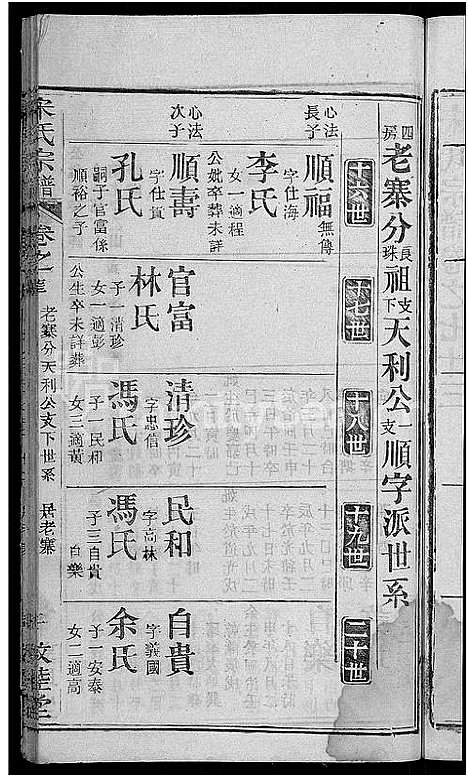 四房老寨分良珠祖支下天利公一支順字派世系
十六世
十七世
十八世
十九世
二十世
心法長子
順福
無傳
字仕海
李氏
女一適程
公妣卒葬未詳
心法次子
順壽
字仕賞
孔氏
嗣子官富係
順裕之子
官富
林氏
子一清珍
女一適彭
公生卒未詳葬
清珍
字忠信
馮氏
子一民和
女三適黃
民和
字高林
馮氏
子三自貴
自樂
自貴
字義國
余氏
子一安泰
女二適高
宋氏宗譜
卷之三
老寨分天利公支下世系
居老寨